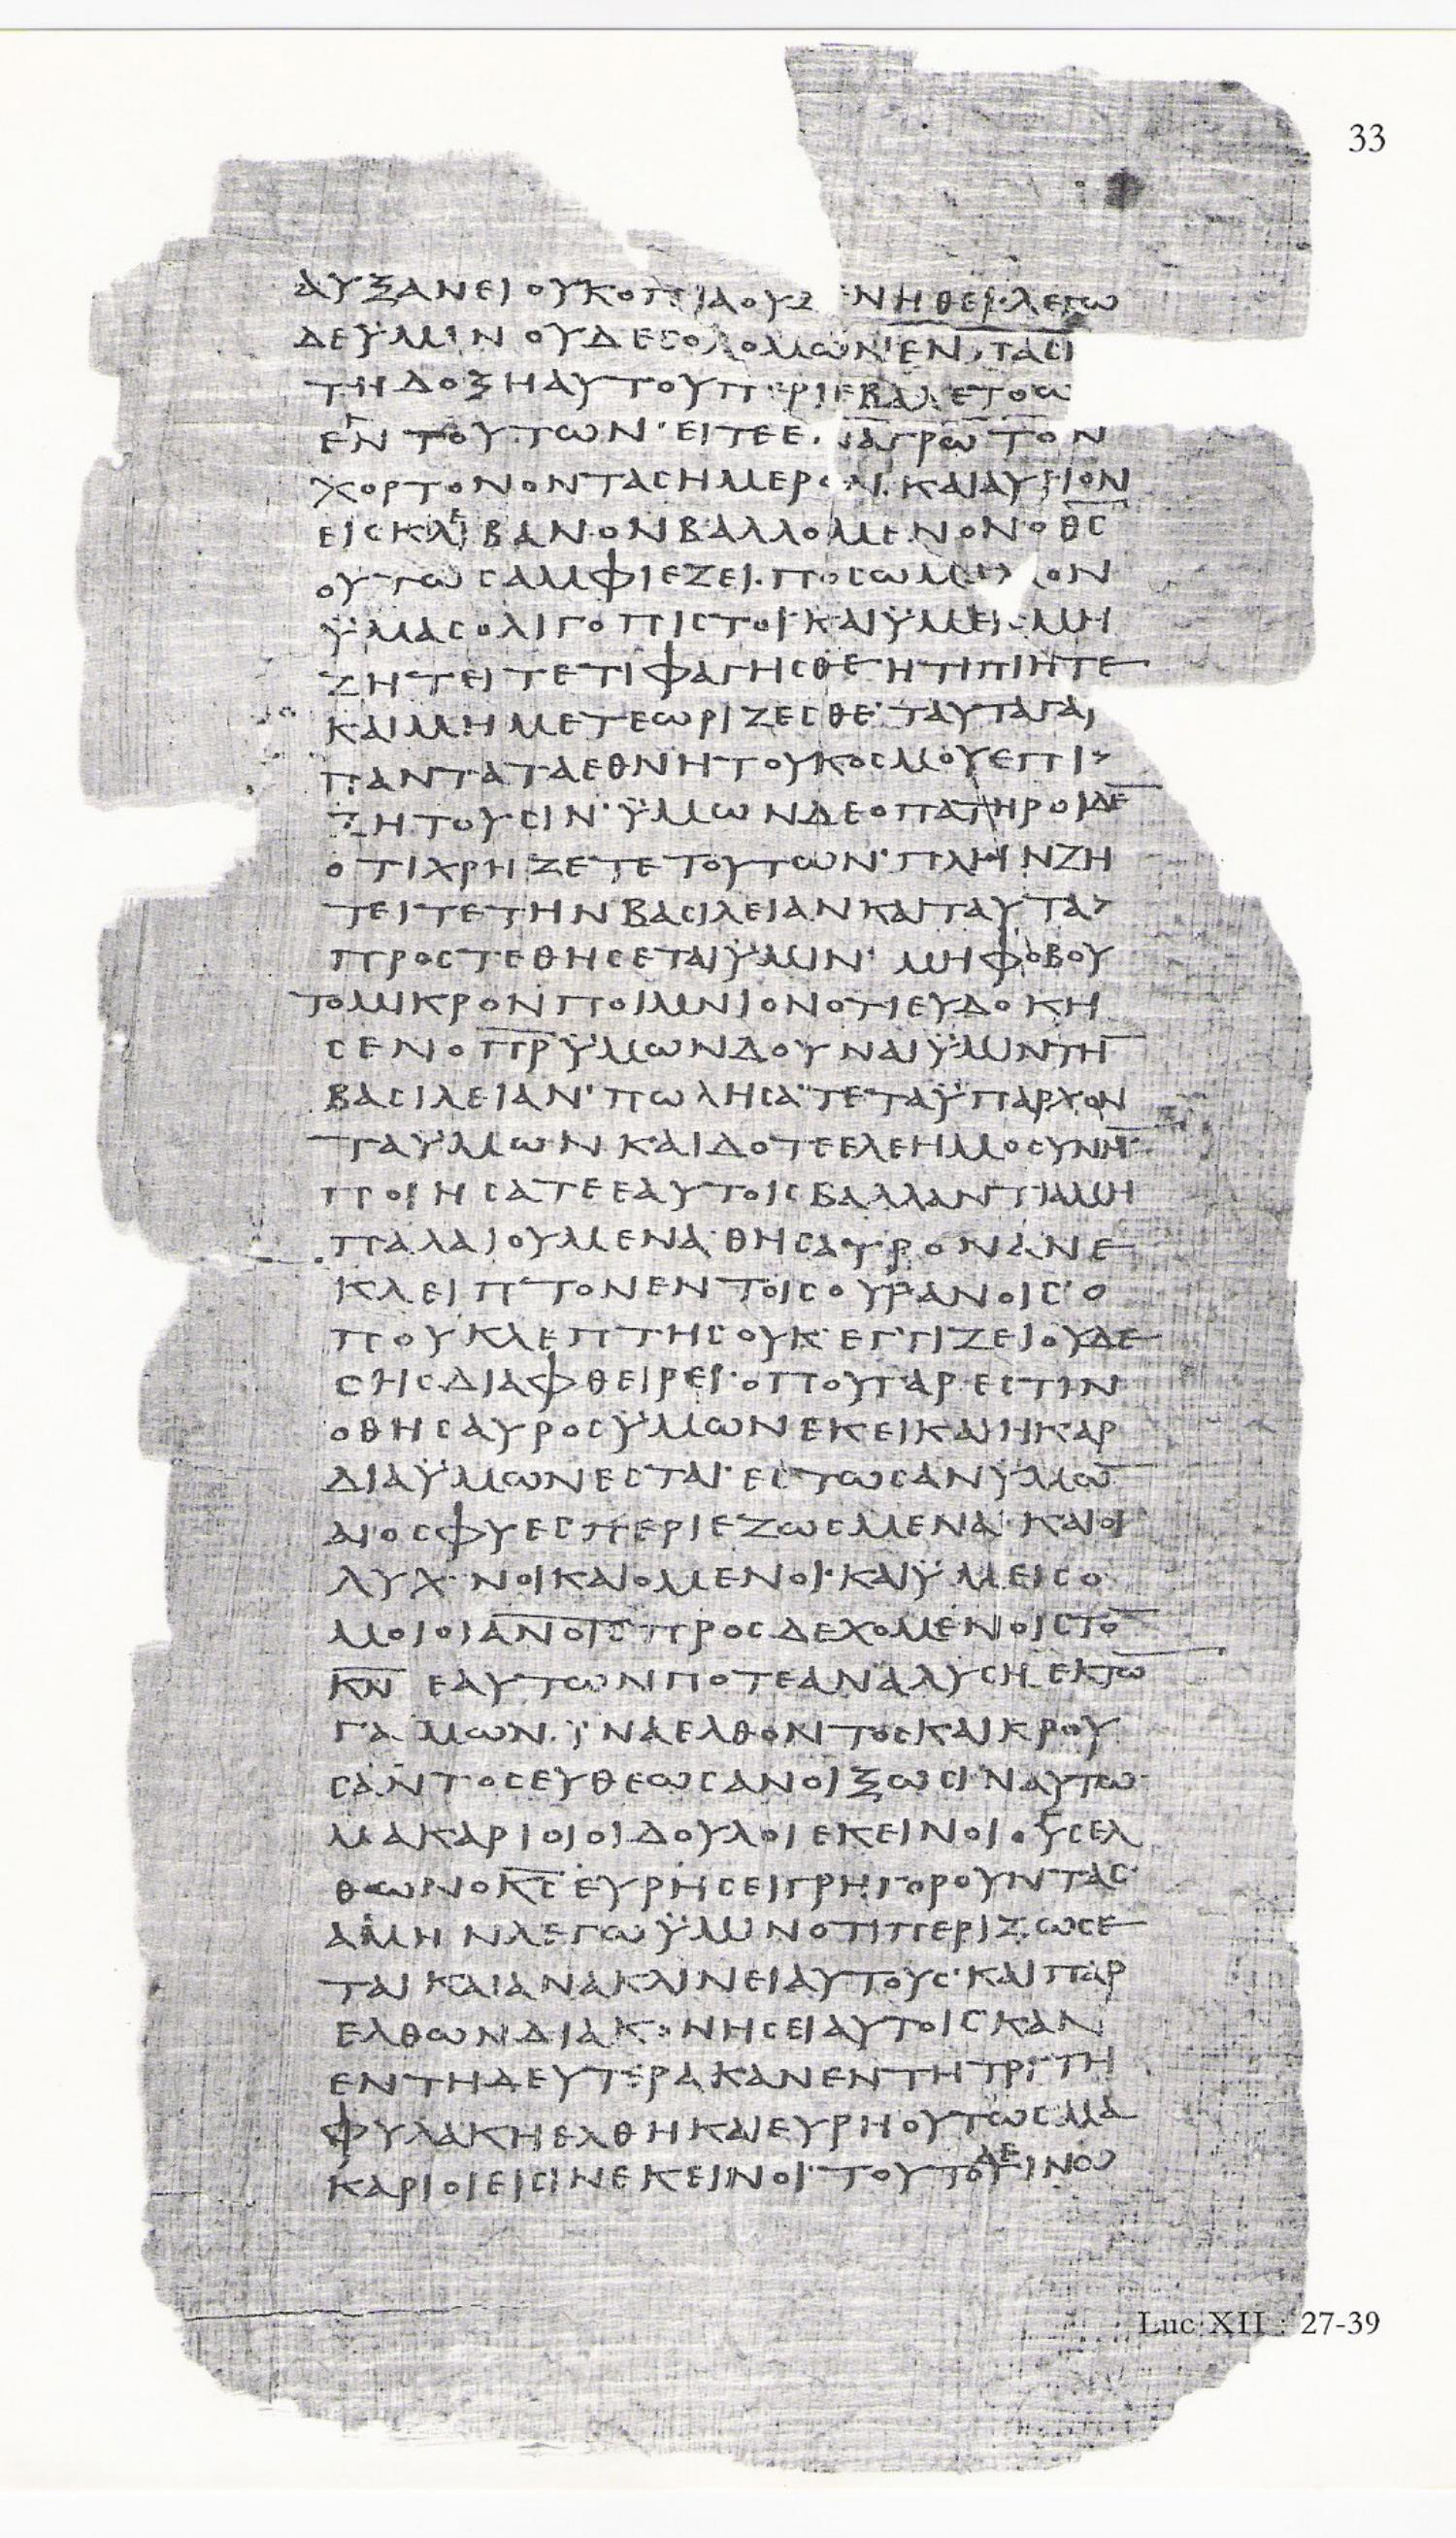 33
ΑΥΞΑΝΕΙΟΥΚΟΠΙΑΟΥΔ ΝΗΘΕΙ·ΛΕΓΩ
ΔΕΫΜΙΝ ΟΥΔΕΣΟΛΟΜΩΝ ΕΝ ΠΑΣΙ
ΤΗΔΟΞΗΑΥΤΟΥΠΕΡΙΕΒΑΛΕΤΟΩ
ΕΝ ΤΟΥΤΩΝ·ΕΙΤΕΕΝ ΑΓΡΩ ΤΟΝ
ΧΟΡΤΟΝΟΝΤΑΣΗΜΕΡΟΝ·ΚΑΙΑΥΡΙΟΝ
ΕΙΣΚΛΙΒΑΝΟΝΒΑΛΛΟΜΕΝΟΝΟΘ̅Σ̅
ΟΥΤΩΣΑΜΦΙΕΖΕΙ·ΠΟΣΩΜΑΛΛΟΝ
ΫΜΑΣΟΛΙΓΟΠΙΣΤΟΙ·ΚΑΙΫΜΕΙΣΜΗ
ΖΗΤΕΙΤΕΤΙΦΑΓΗΣΘΕ·ΗΤΙΠΙΗΤΕ
ΚΑΙΜΗΜΕΤΕΩΡΙΖΕΣΘΕ·ΤΑΥΤΑΓΑΡ
ΠΑΝΤΑΤΑΕΘΝΗΤΟΥΚΟΣΜΟΥΕΠΙ>
ΖΗΤΟΥΣΙΝ·ΫΜΩΝΔΕΟΠΑΤΗΡΟΙΔΕ̅
ΟΤΙΧΡΗΖΕΤΕΤΟΥΤΩΝ·ΠΛΗΝΖΗ
ΤΕΙΤΕΤΗΝΒΑΣΙΛΕΙΑΝΚΑΙΤΑΥΤΑ>
ΠΡΟΣΤΕΘΗΣΕΤΑΙΫΜΙΝ· ΜΗΦΟΒΟΥ
ΤΟΜΙΚΡΟΝΠΟΙΜΝΙΟΝΟΤΙΕΥΔΟΚΗ
ΣΕΝΟΠ̅Ρ̅ΫΜΩΝΔΟΥΝΑΙΫΜΙΝΤΗ̅
ΒΑΣΙΛΕΙΑΝ·ΠΩΛΗΣΑΤΕΤΑΫΠΑΡΧΟΝ
ΤΑΫΜΩΝΚΑΙΔΟΤΕΕΛΕΗΜΟΣΥΝΗ̅·
ΠΟΙΗΣΑΤΕΕΑΥΤΟΙΣΒΑΛΛΑΝΤΙΑΜΗ
ΠΑΛΑΙΟΥΜΕΝΑ·ΘΗΣΑΥΡΟΝΑΝΕ
ΚΛΕΙΠΤΟΝΕΝΤΟΙΣΟΥΡΑΝΟΙΣ·Ο
ΠΟΥΚΛΕΠΤΗΣΟΥΚ ΕΓΓΙΖΕΙΟΥΔΕ
ΣΗΣΔΙΑΦΘΕΙΡΕΙ·ΟΠΟΥΓΑΡΕΣΤΙΝ
ΟΘΗΣΑΥΡΟΣΫΜΩΝΕΚΕΙΚΑΙΗΚΑΡ
ΔΙΑΫΜΩΝΕΣΤΑΙ·ΕΣΤΩΣΑΝΫΜΩ̅
ΑΙΟΣΦΥΕΣΠΕΡΙΕΖΩΣΜΕΝΑΙ·ΚΑΙΟΙ
ΛΥΧΝΟΙΚΑΙΟΜΕΝΟΙ·ΚΑΙΫΜΕΙΣΟ
ΜΟΙΟΙΑ̅Ν̅Ο̅Ι̅Σ̅ΠΡΟΣΔΕΧΟΜΕΝΟΙΣΤΟ̅
Κ̅Ν̅ ΕΑΥΤΩΝΠΟΤΕΑΝΑΛΥΣΗ ΕΚΤΩ̅
ΓΑΜΩΝ·ΪΝΑΕΛΘΟΝΤΟΣΚΑΙΚΡΟΥ
ΣΑΝΤΟΣΕΥΘΕΩΣΑΝΟΙΞΩΣΙΝΑΥΤΩ·
ΜΑΚΑΡΙΟΙΟΙΔΟΥΛΟΙΕΚΕΙΝΟΙΟΥΣΕΛ
ΘΩΝΟΚ̅Σ̅ΕΥΡΗΣΕΙΓΡΗΓΟΡΟΥΝΤΑΣ·
ΑΜΗΝΛΕΓΩΫΜΙΝΟΤΙΠΕΡΙΖΩΣΕ
ΤΑΙΚΑΙΑΝΑΚΛΙΝΕΙΑΥΤΟΥΣ·ΚΑΙΠΑΡ
ΕΛΘΩΝΔΙΑΚΟΝΗΣΕΙΑΥΤΟΙΣΚΑΝ
ΕΝΤΗΔΕΥΤΕΡΑΚΑΝΕΝΤΗΤΡΙΤΗ
ΦΥΛΑΚΗΕΛΘΗΚΑΙΕΥΡΗΟΥΤΩΣΜΑ
ΚΑΡΙΟΙΕΙΣΙΝΕΚΕΙΝΟΙ·ΤΟΥΤΟΔΕΓΙΝΩ
Luc XII : 27-39